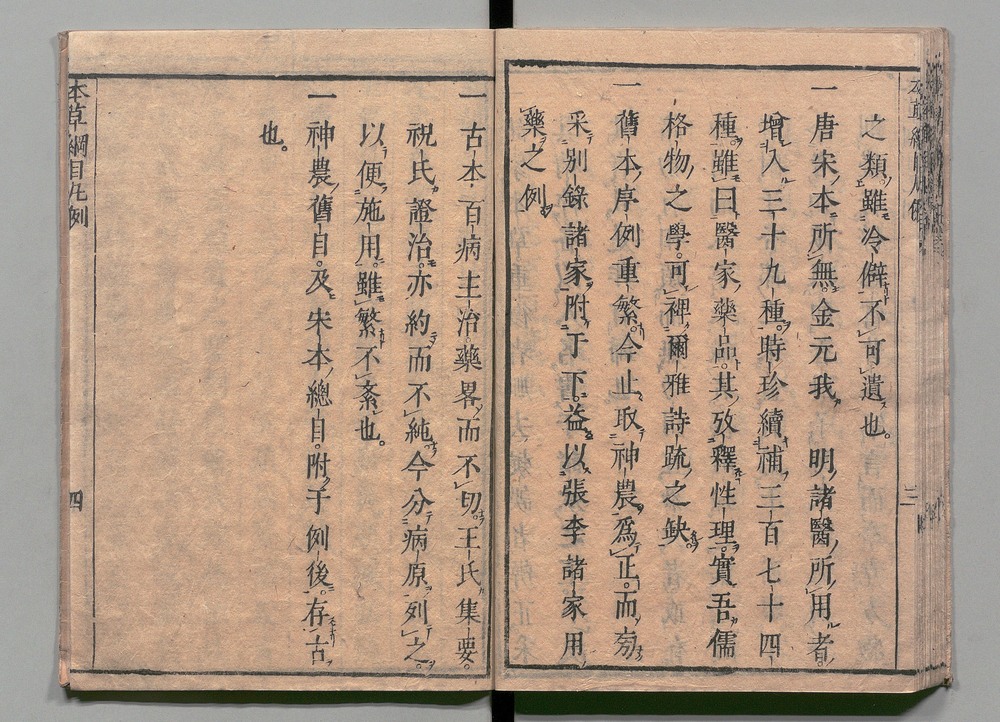 之類雖冷僻不可遺也。
一唐宋本所無金元我　明諸醫所用者
增入三十九種時珍續補三百七十四
種雖曰醫家藥品其攷釋性理實吾儒
格物之學可裨爾雅詩疏之缺
一舊本序例重繁今止取神農爲正而旁
采別錄諸家附于下益以張李諸家用
藥之例
一古本百病主治藥畧而不切王氏集要
祝氏證治亦約而不純今分病原列之。
以便施用。雖繁不紊也。
一神農舊目及宋本總目附于例後。存古
也。
本草綱目凡例
四